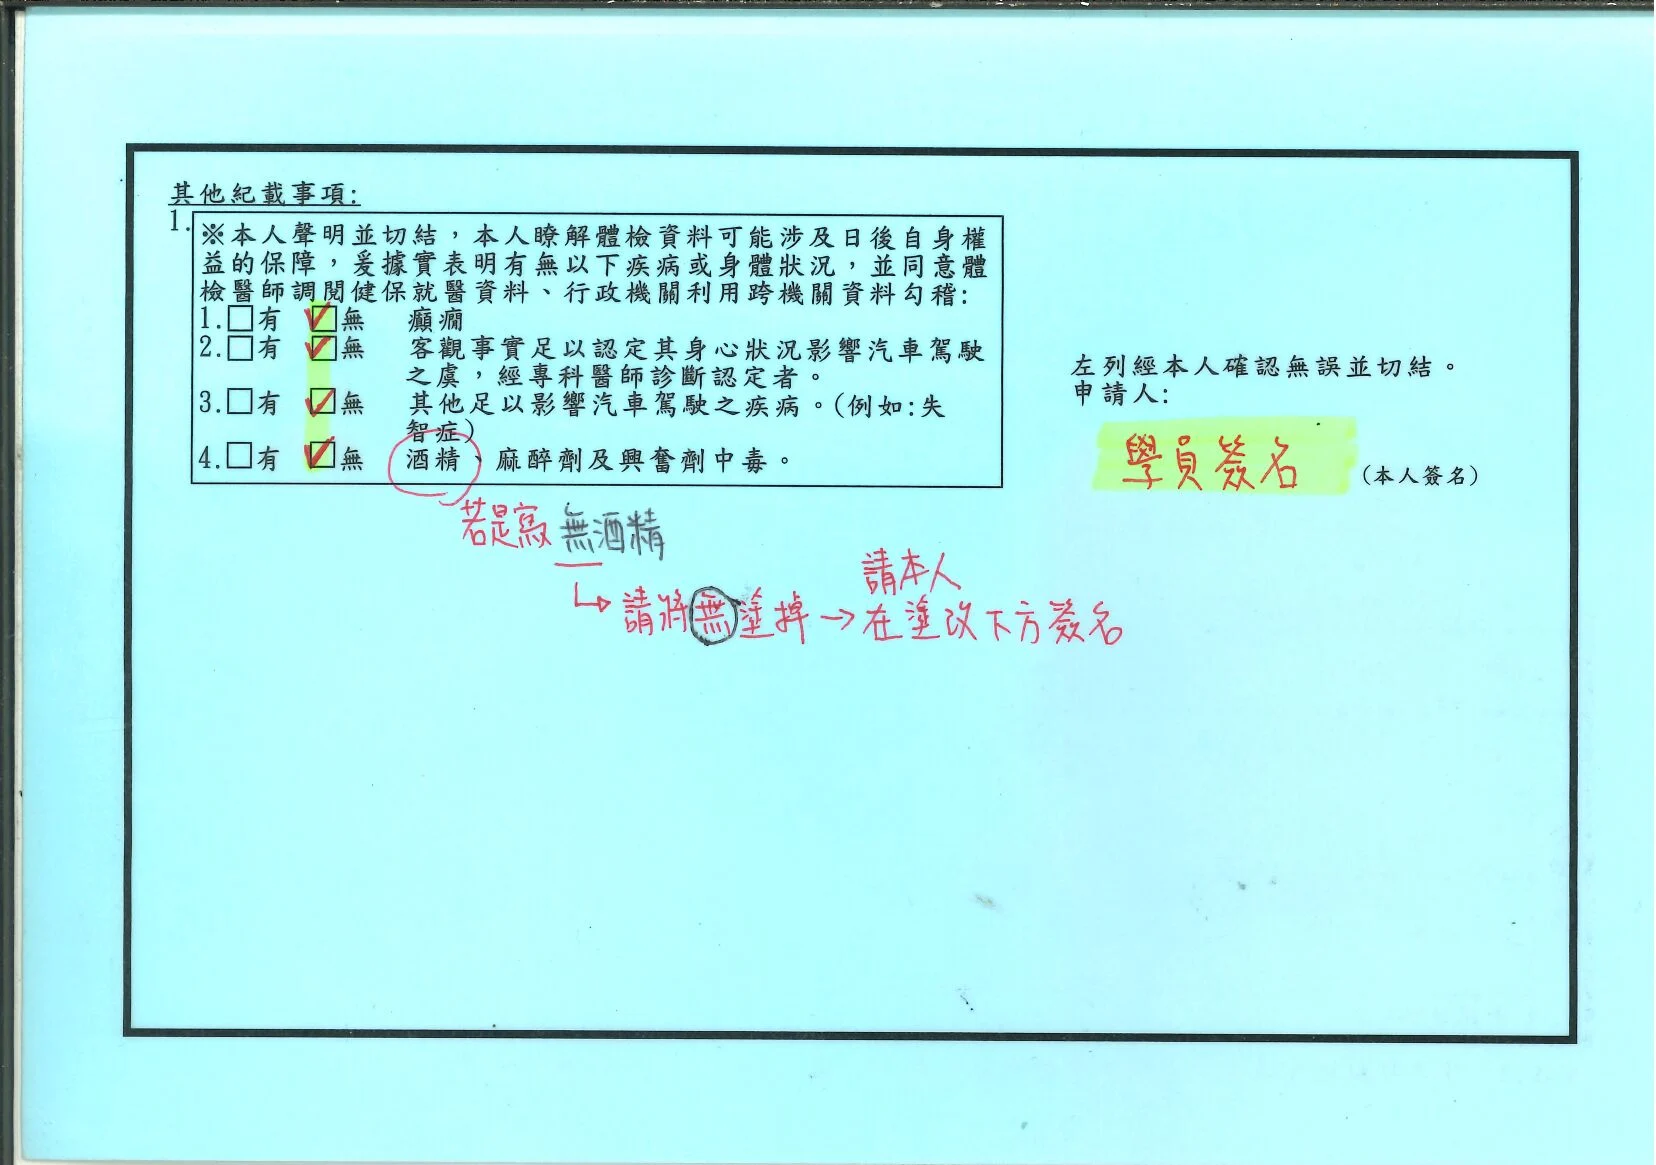 其他紀載事項:
1.
※本人聲明並切結，本人瞭解體檢資料可能涉及日後自身權
益的保障，爰據實表明有無以下疾病或身體狀況，並同意體
檢醫師調閱健保就醫資料、行政機關利用跨機關資料勾稽:
1.□有 ☑無 癲癇
2.□有 ☑無 客觀事實足以認定其身心狀況影響汽車駕駛
之虞，經專科醫師診斷認定者。
3.□有 ☑無 其他足以影響汽車駕駛之疾病。(例如:失
智症)
4.□有 ☑無 酒精、麻醉劑及興奮劑中毒。
左列經本人確認無誤並切結。
申請人:
學員簽名 (本人簽名)
若是寫 無酒精
↳請將無塗掉→在塗改下方簽名
請本人